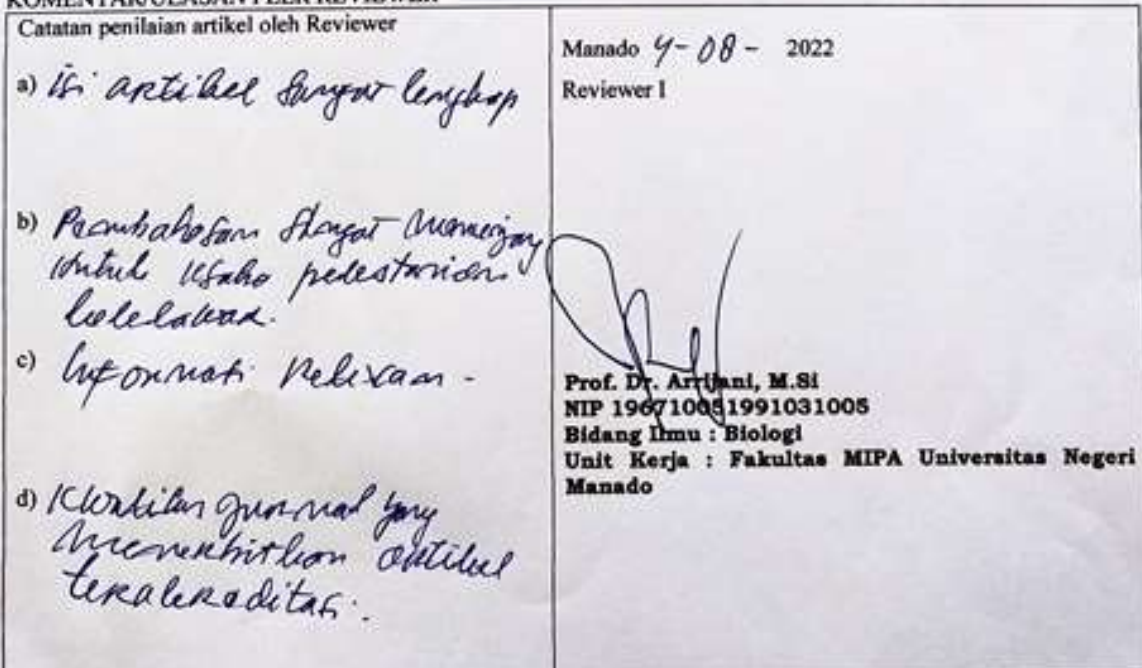 KOMENTAR/ULASAN PEER REVIEWER
Catatan penilaian artikel oleh Reviewer
a) isi artikel sangat lengkap
b) Pembahasan sangat menunjang
untuk usaha pelestarian
kelelawar.
c) Informasi
d) Kualitas jurnal yang
menerbitkan artikel
terakreditasi.
Manado 4-08- 2022
Reviewer I
Prof. Dr. Arrijani, M.Si
NIP 196710051991031005
Bidang Ilmu : Biologi
Unit Kerja : Fakultas MIPA Universitas Negeri
Manado